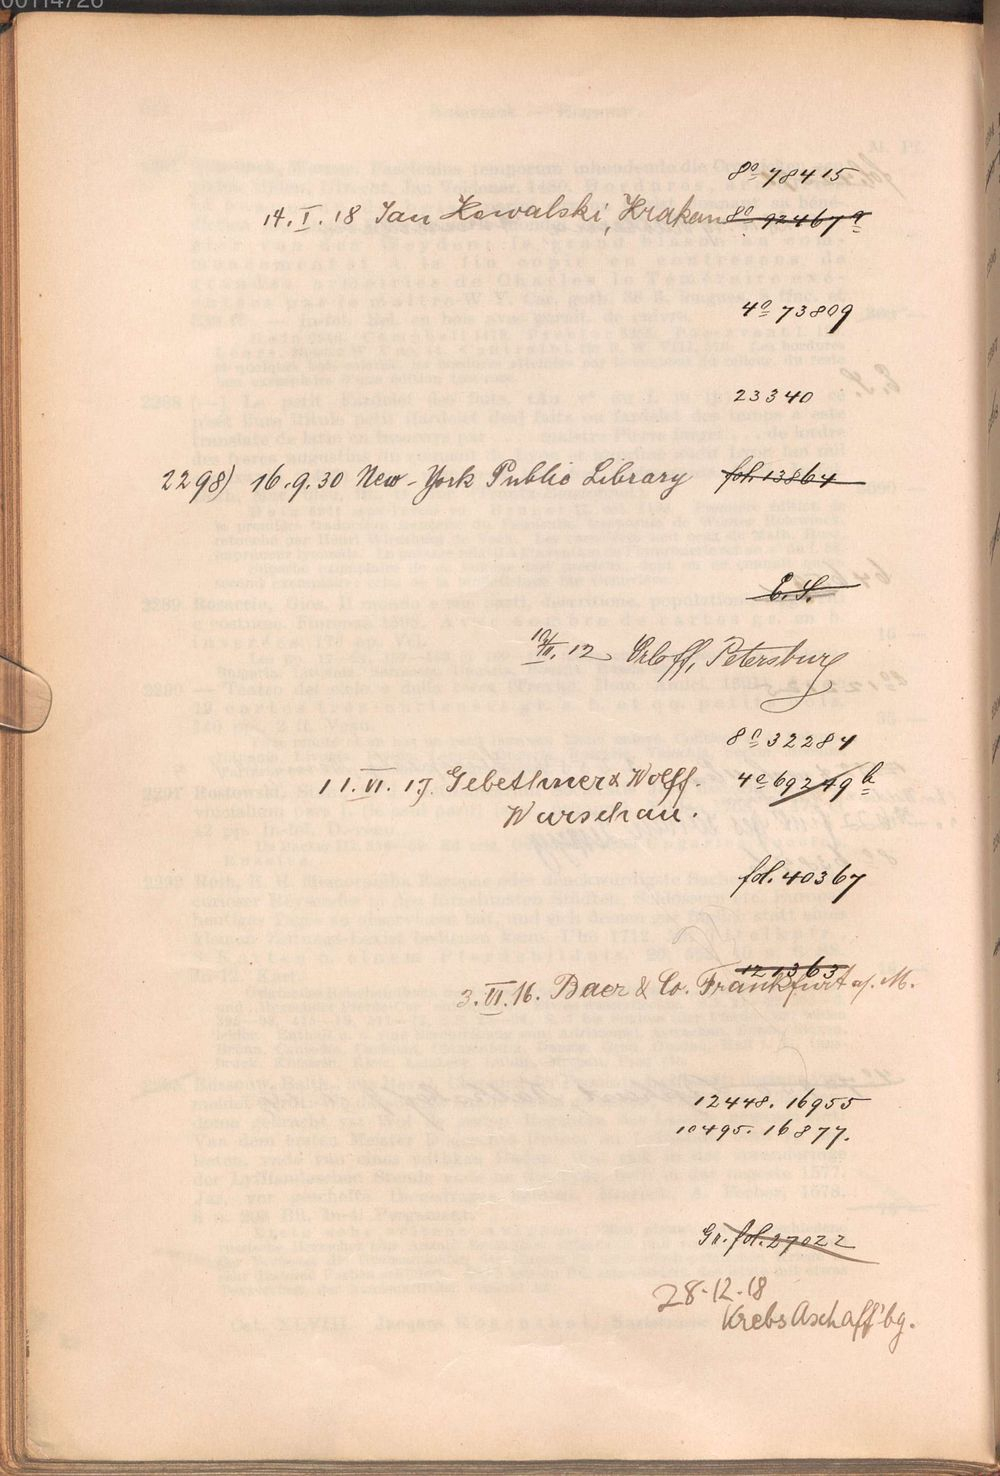 00114726
8º 78415
14. I. 18 Jan Kowalski, Krakau 8º 92467 a
4º 73809
23340
2298) 16.9.30 New-York Public Library fol. 13864
E. S.
12 Orloff, Petersburg
8º 32284
11. VI. 17. Gebethner & Wolff. 4º 69249 b
Warschau.
fol. 40367
121363
3. VI. 16. Baer & Co. Frankfurt a/. M.
12448. 16955
10495. 16877.
Gr. fol. 27022
28.12.18
Krebs Aschaff'bg.